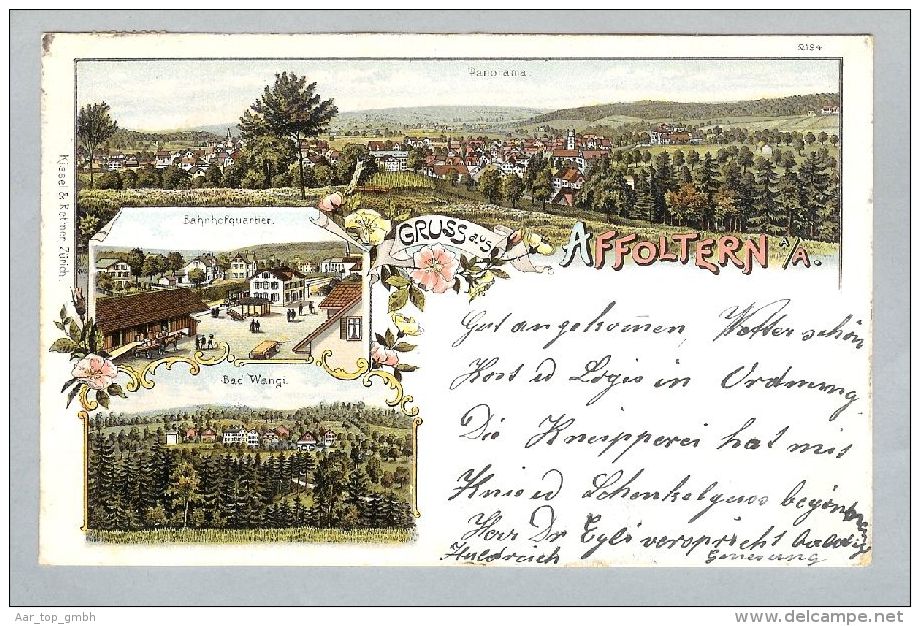 2194
Panorama.
Kiesel & Rethner Zürich
Bahnhofquartier.
GRUSS aus
AFFOLTERN a/A.
Bad Wangi.
Gut angekom̄en, Wetter schön
Kost u Logis in Ordnung
Die Kneipperei hat mit
Knie u Schenkelguss begonnen
Herr Dr Egli verspricht baldig
Huldreich Genesung
Aar_top_gmbh
www.delcampe.net